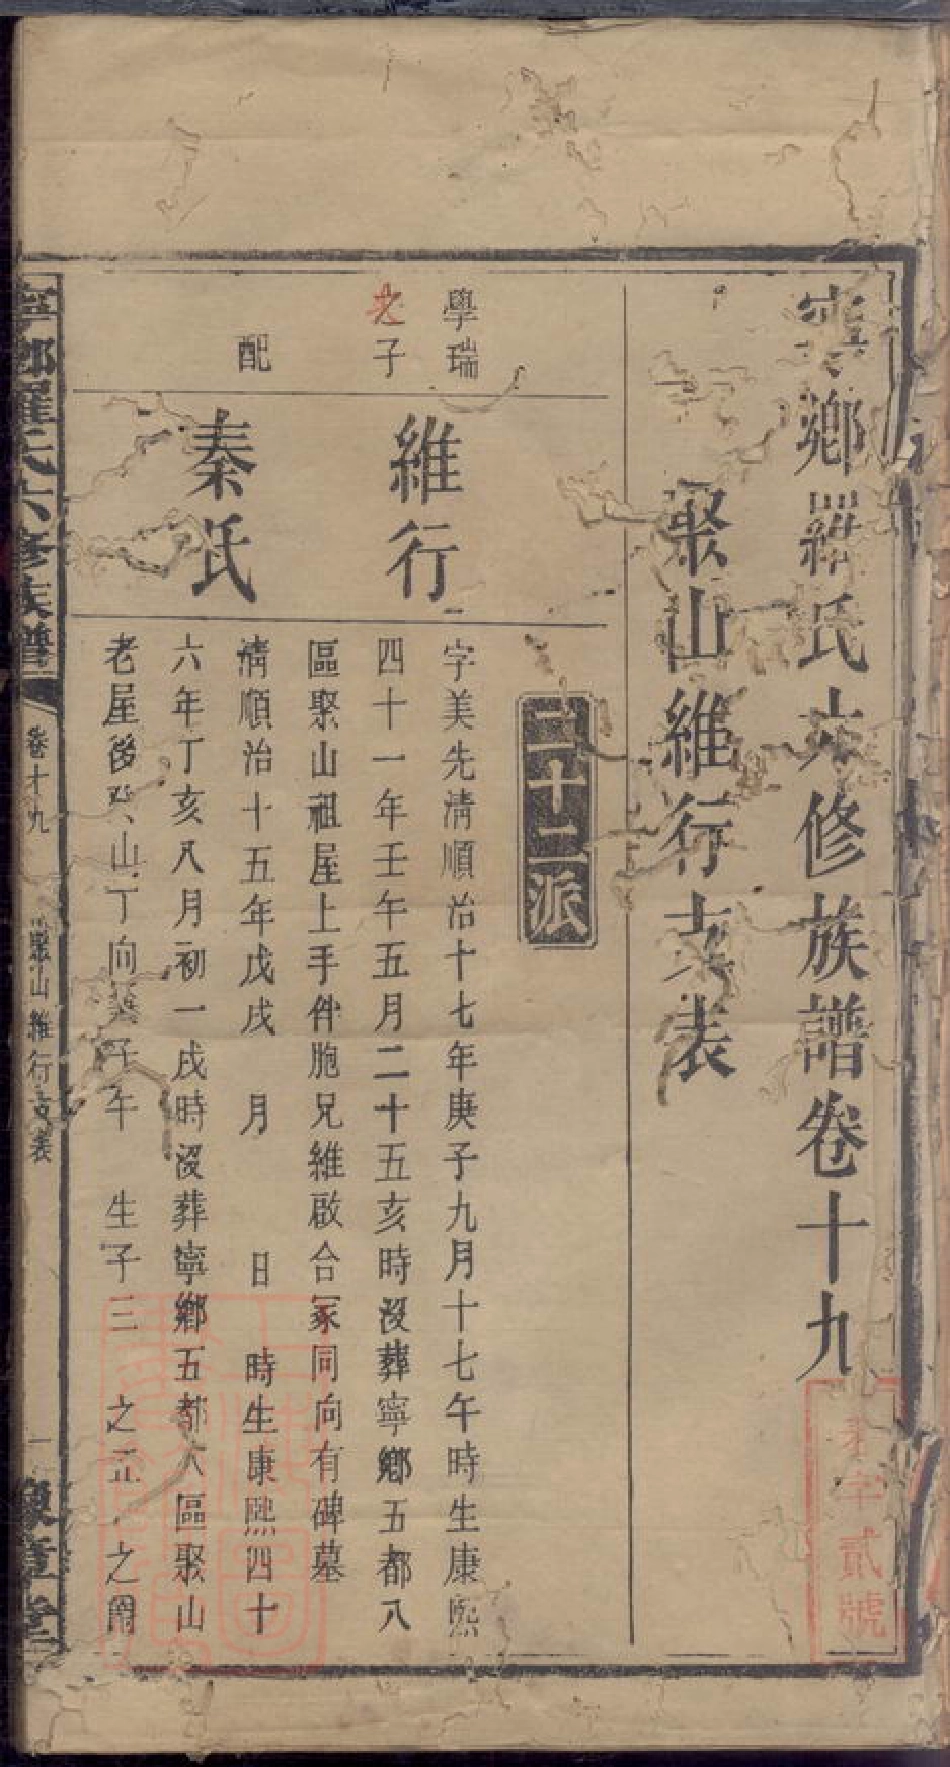 寧鄉羅氏六修族譜卷十九
聚山維行支表
二十二派
學瑞
子
維行
字美先清順治十七年庚子九月十七午時生康熙
四十一年壬午五月二十五亥時沒葬寧鄉五都八
區聚山祖屋上手件胞兄維啟合冢同向有碑墓
配
秦氏
清順治十五年戊戌 月 日 時生康熙四十
六年丁亥八月初一戌時沒葬寧鄉五都八區聚山
老屋後 山丁向 子午 生子三 之正 之
寧鄉羅氏六修族譜
卷十九
聚山維行支表
一
豫章堂
字貳號